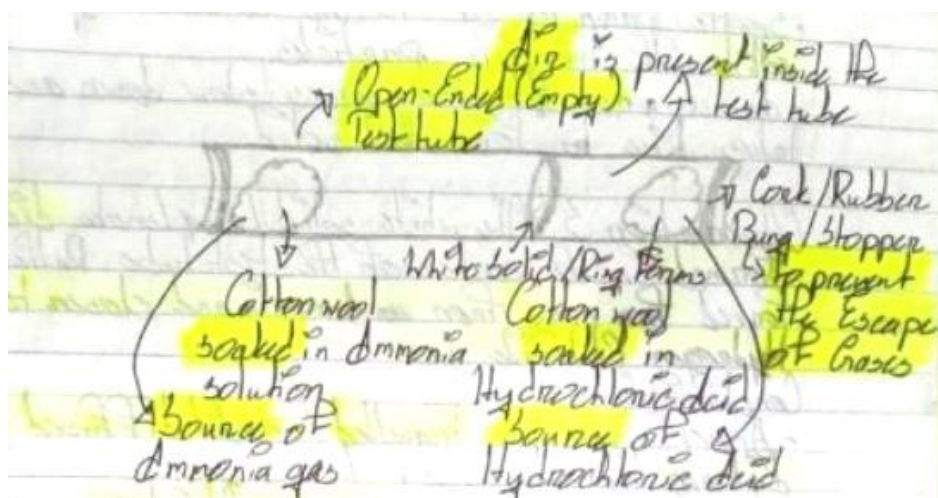 Air is present inside the
test tube
Open-Ended (Empty)
Test tube
Cork/Rubber
Bung/Stopper
to prevent
the Escape
of Gases
White Solid/Ring Forms
Cotton wool
soaked in Ammonia
solution
Source of
Ammonia gas
Cotton wool
soaked in
Hydrochloric Acid
Source of
Hydrochloric Acid